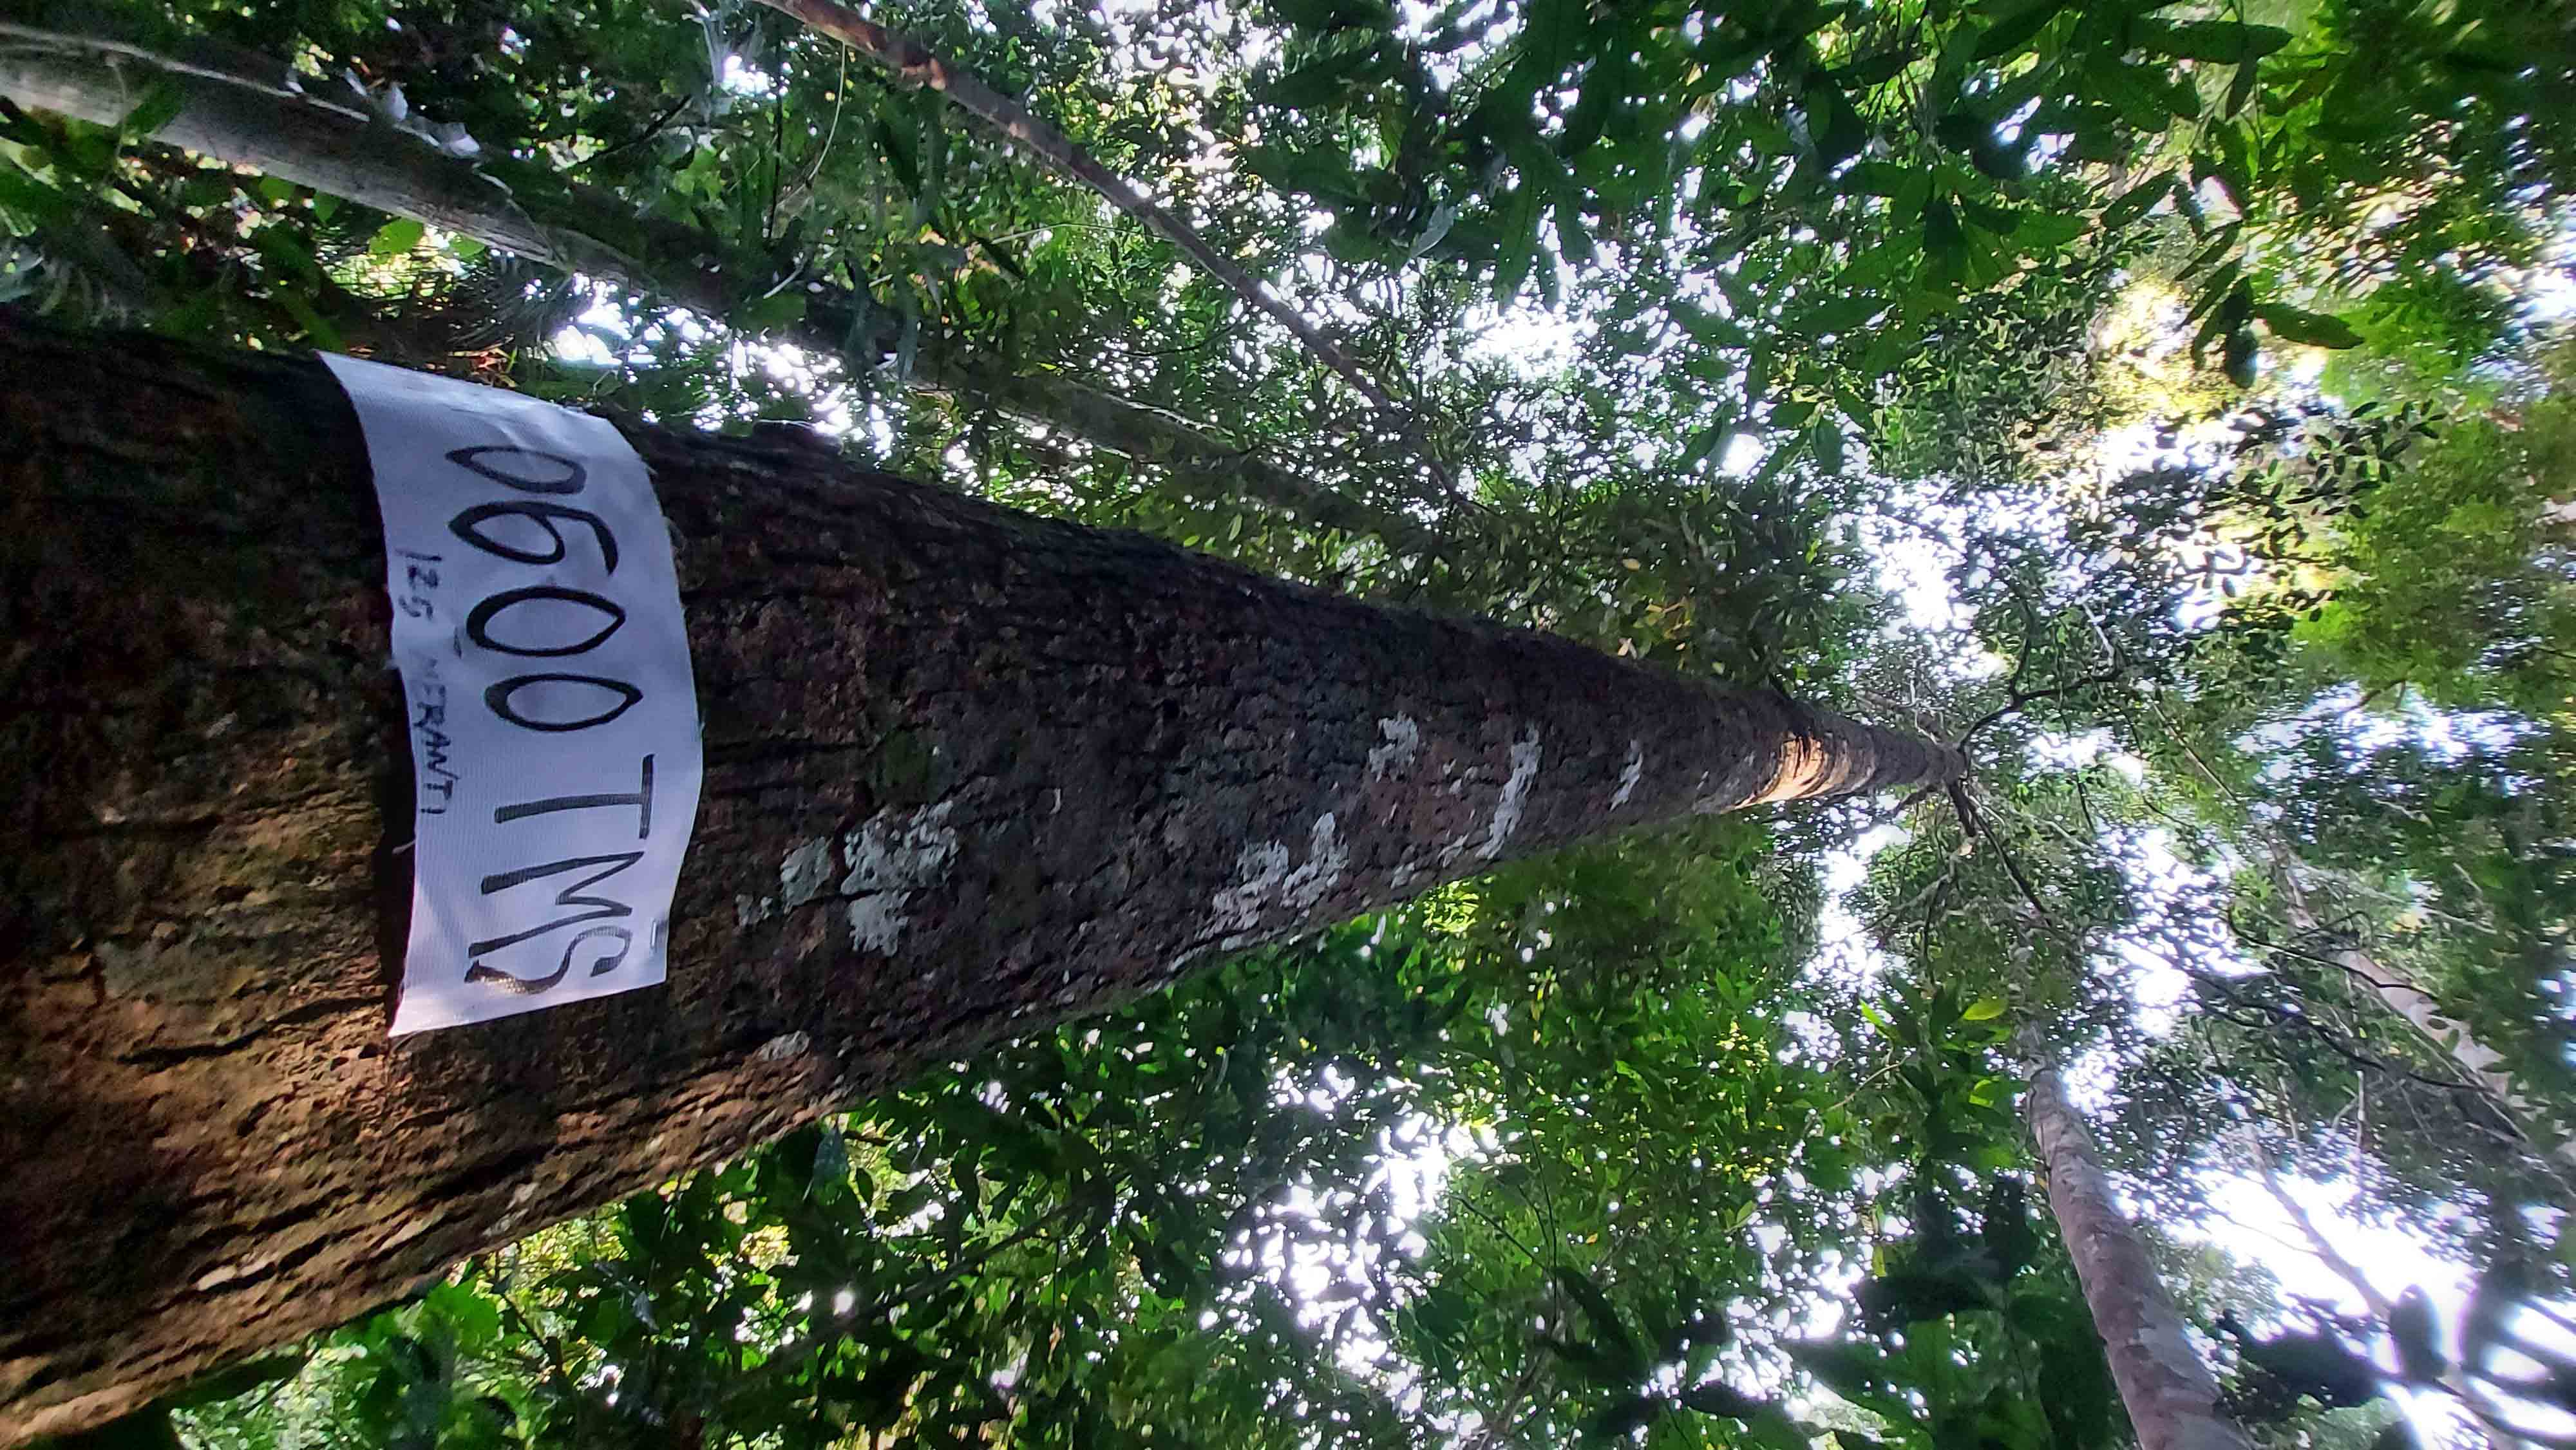 0600 TMS
125 MERANTI